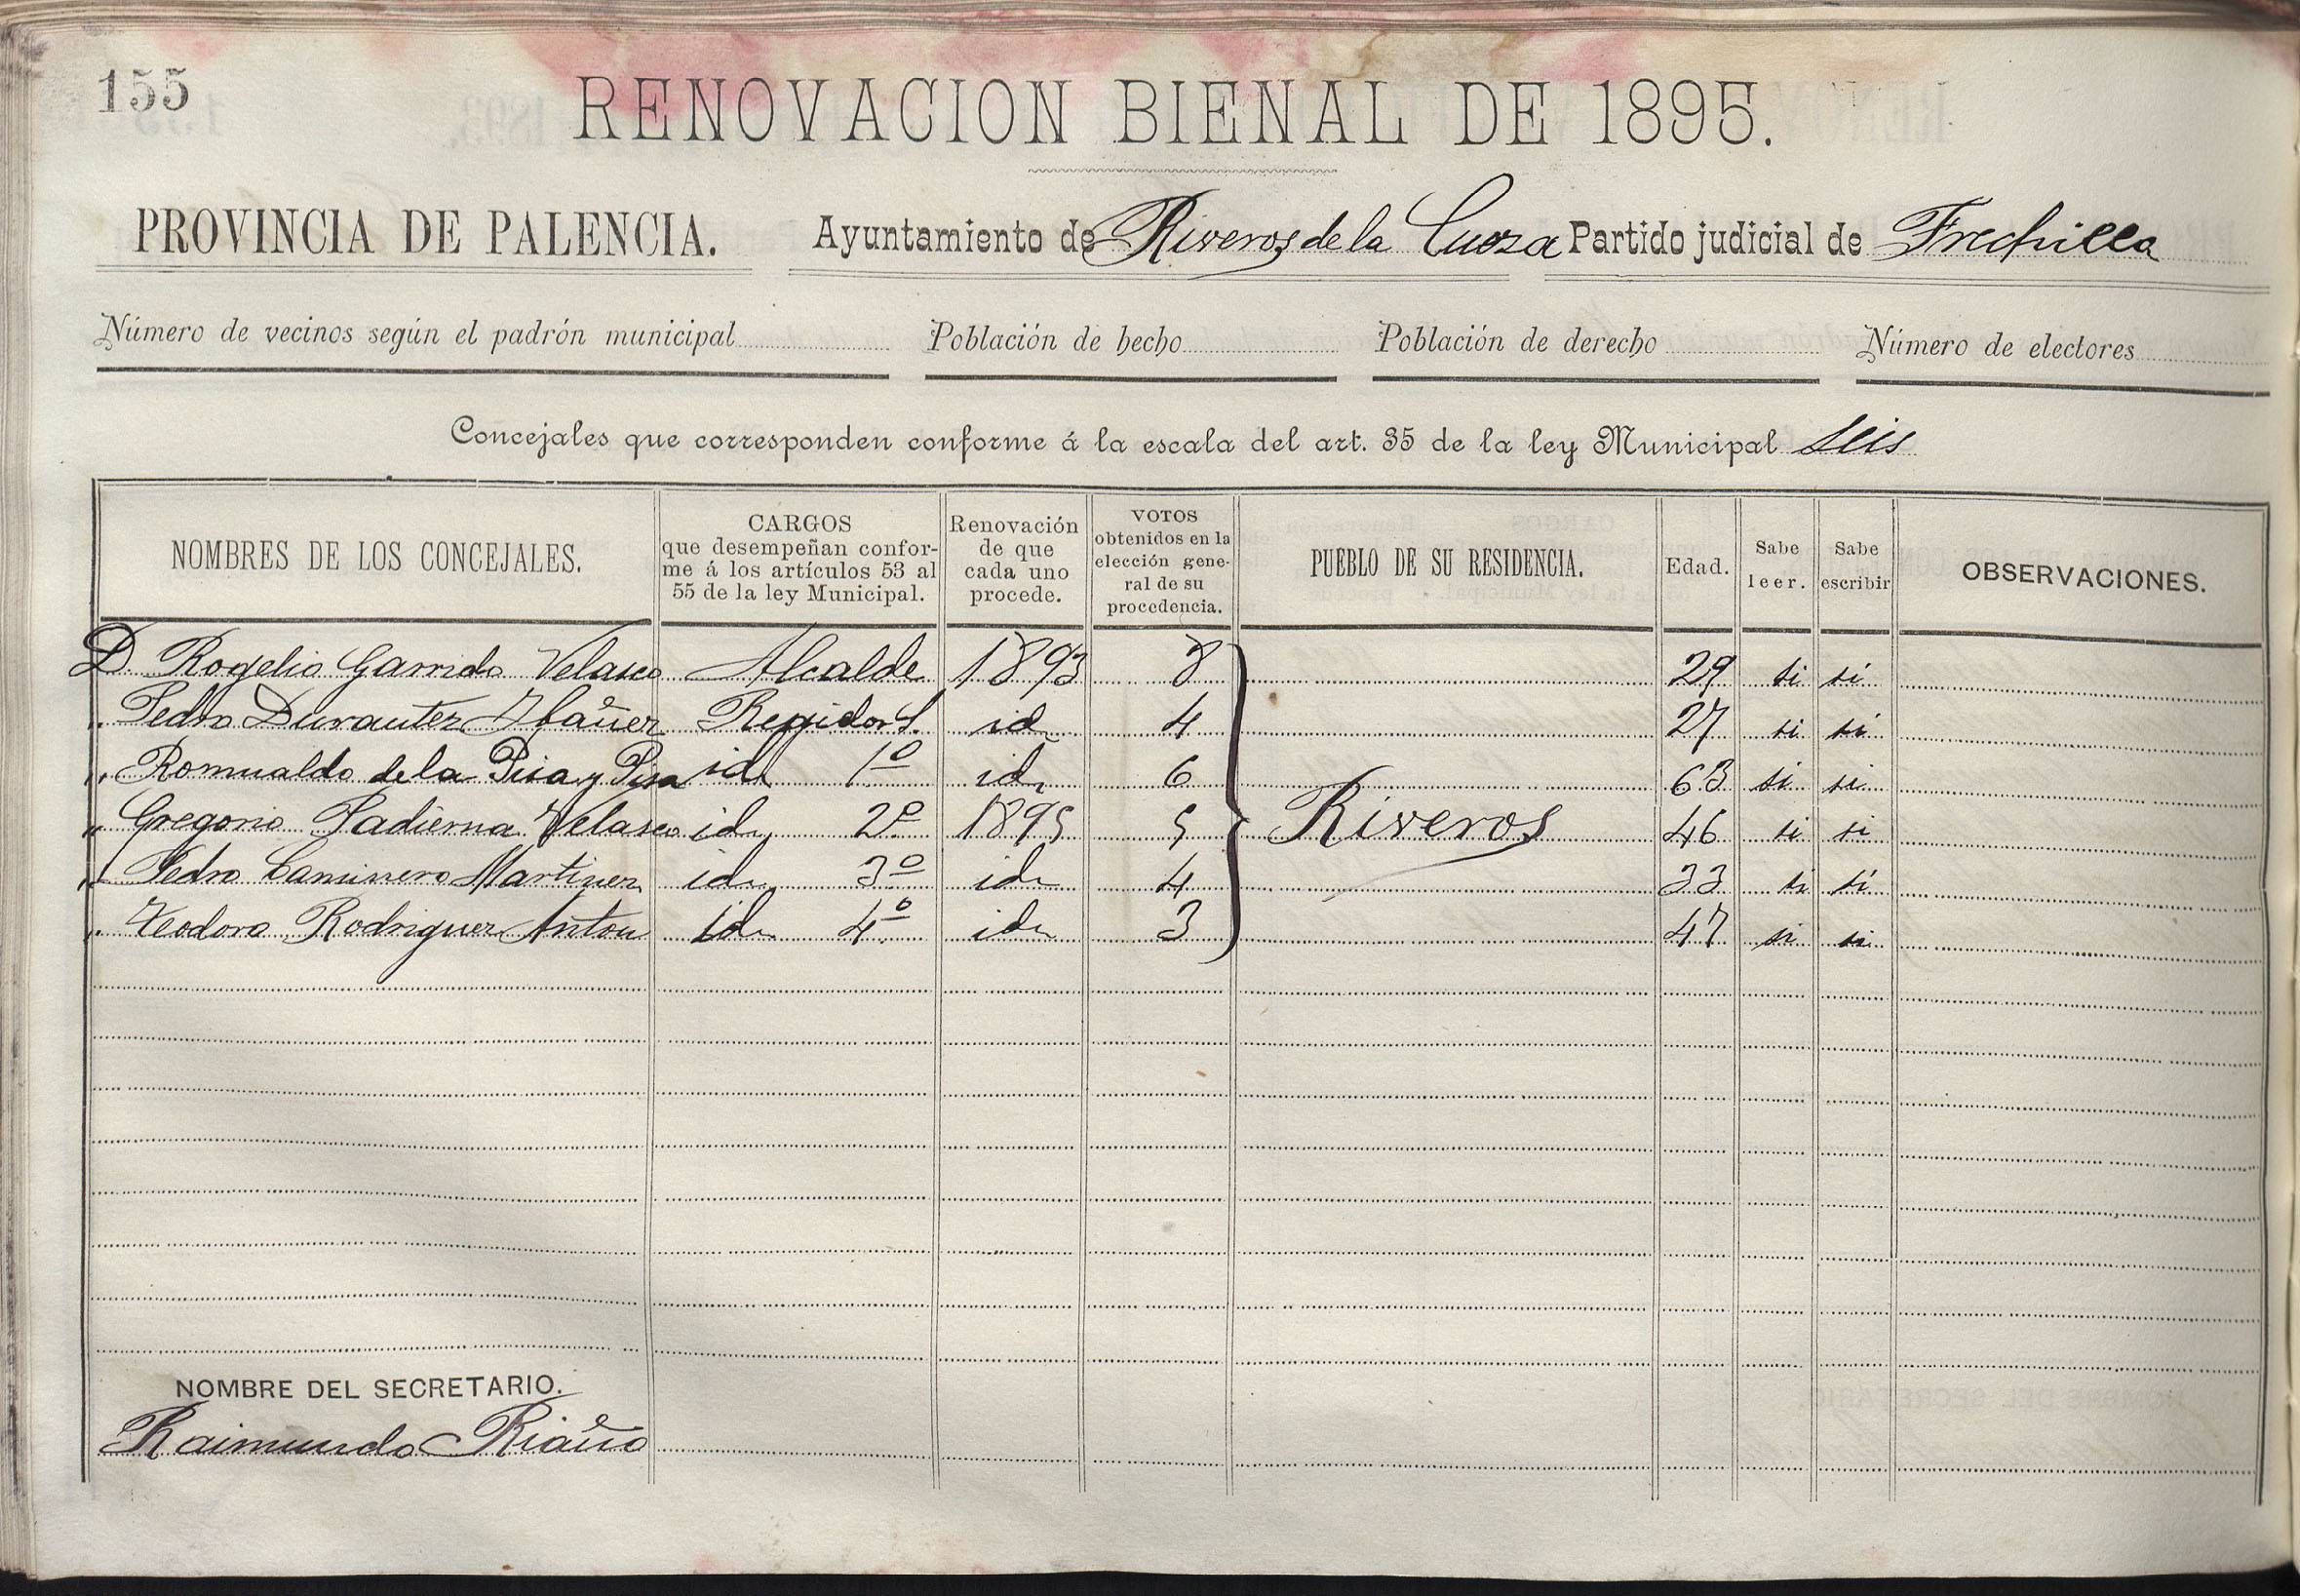 155
RENOVACION BIENAL DE 1895.
PROVINCIA DE PALENCIA. Ayuntamiento de Riveros de la Cueza Partido judicial de Frechilla
Número de vecinos según el padrón municipal Población de hecho Población de derecho Número de electores
Concejales que corresponden conforme á la escala del art. 35 de la ley Municipal seis
NOMBRES DE LOS CONCEJALES.
CARGOS
que desempeñan confor-
me á los artículos 53 al
55 de la ley Municipal.
Renovación
de que
cada uno
procede.
VOTOS
obtenidos en la
elección gene-
ral de su
procedencia.
PUEBLO DE SU RESIDENCIA.
Edad.
Sabe
leer.
Sabe
escribir
OBSERVACIONES.
D. Rogelio Garrido Velasco Alcalde 1893 8 29 si si
" Pedro Durantez Ybañez Regidor S. id 4 27 si si
" Romualdo de la Pisa y Pisa id 1º id 6 63 si si
" Gregorio Sadierna Velasco id 2º 1895 5 Riveros 46 si si
" Pedro Caminero Martinez id 3º id 4 33 si si
" Teodoro Rodriguez Anton id 4º id 3 47 si si
NOMBRE DEL SECRETARIO.
Raimundo Riaño